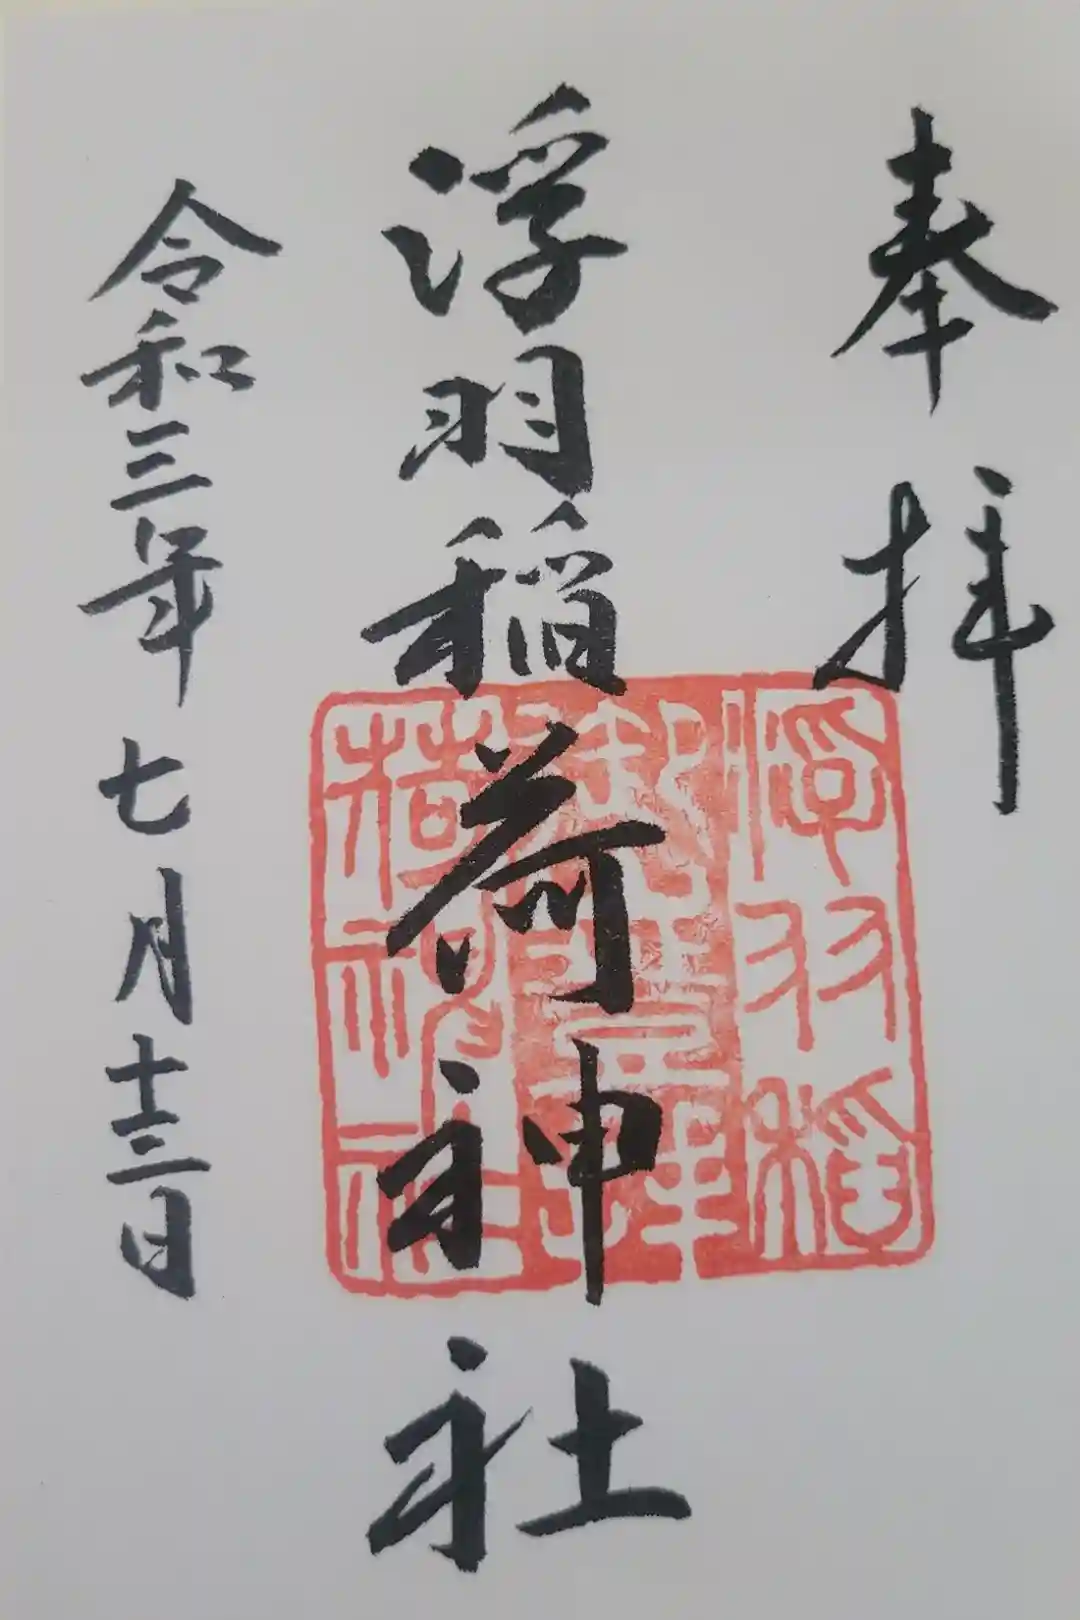 奉拝
浮羽稲荷神社
令和三年七月十三日
浮羽稲